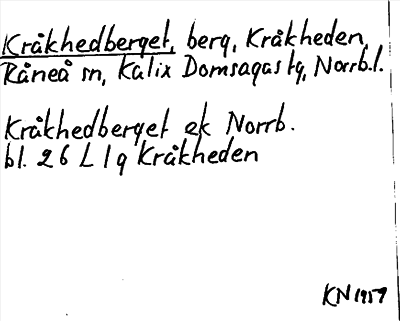 Kråkhedberget, berg, Kråkheden,
Råneå sn, Kalix Domsagas tg, Norrb.l.
Kråkhedberget ek Norrb.
bl. 26 L 1 g Kråkheden
KN 1957